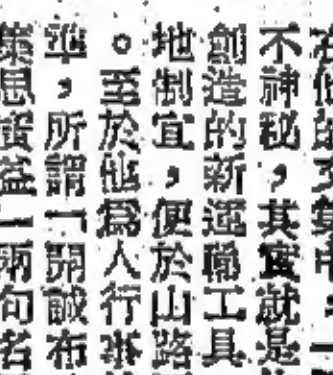 不神秘，其實就是
創造的新運輸工具
地制宜，便於山路
。至於他爲人行
準，所謂「開誠布
集思廣益」兩句名